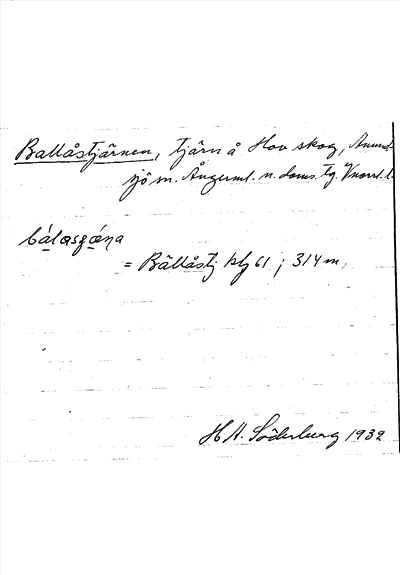 Ballåstjärnen, tjärn å Hov skog, Anund-
sjö sn. Ångerml. n. doms. tg. Vnorrl. l.
= Bällåstj kbf 61 ; 314 m.
H. A. Söderburg 1932